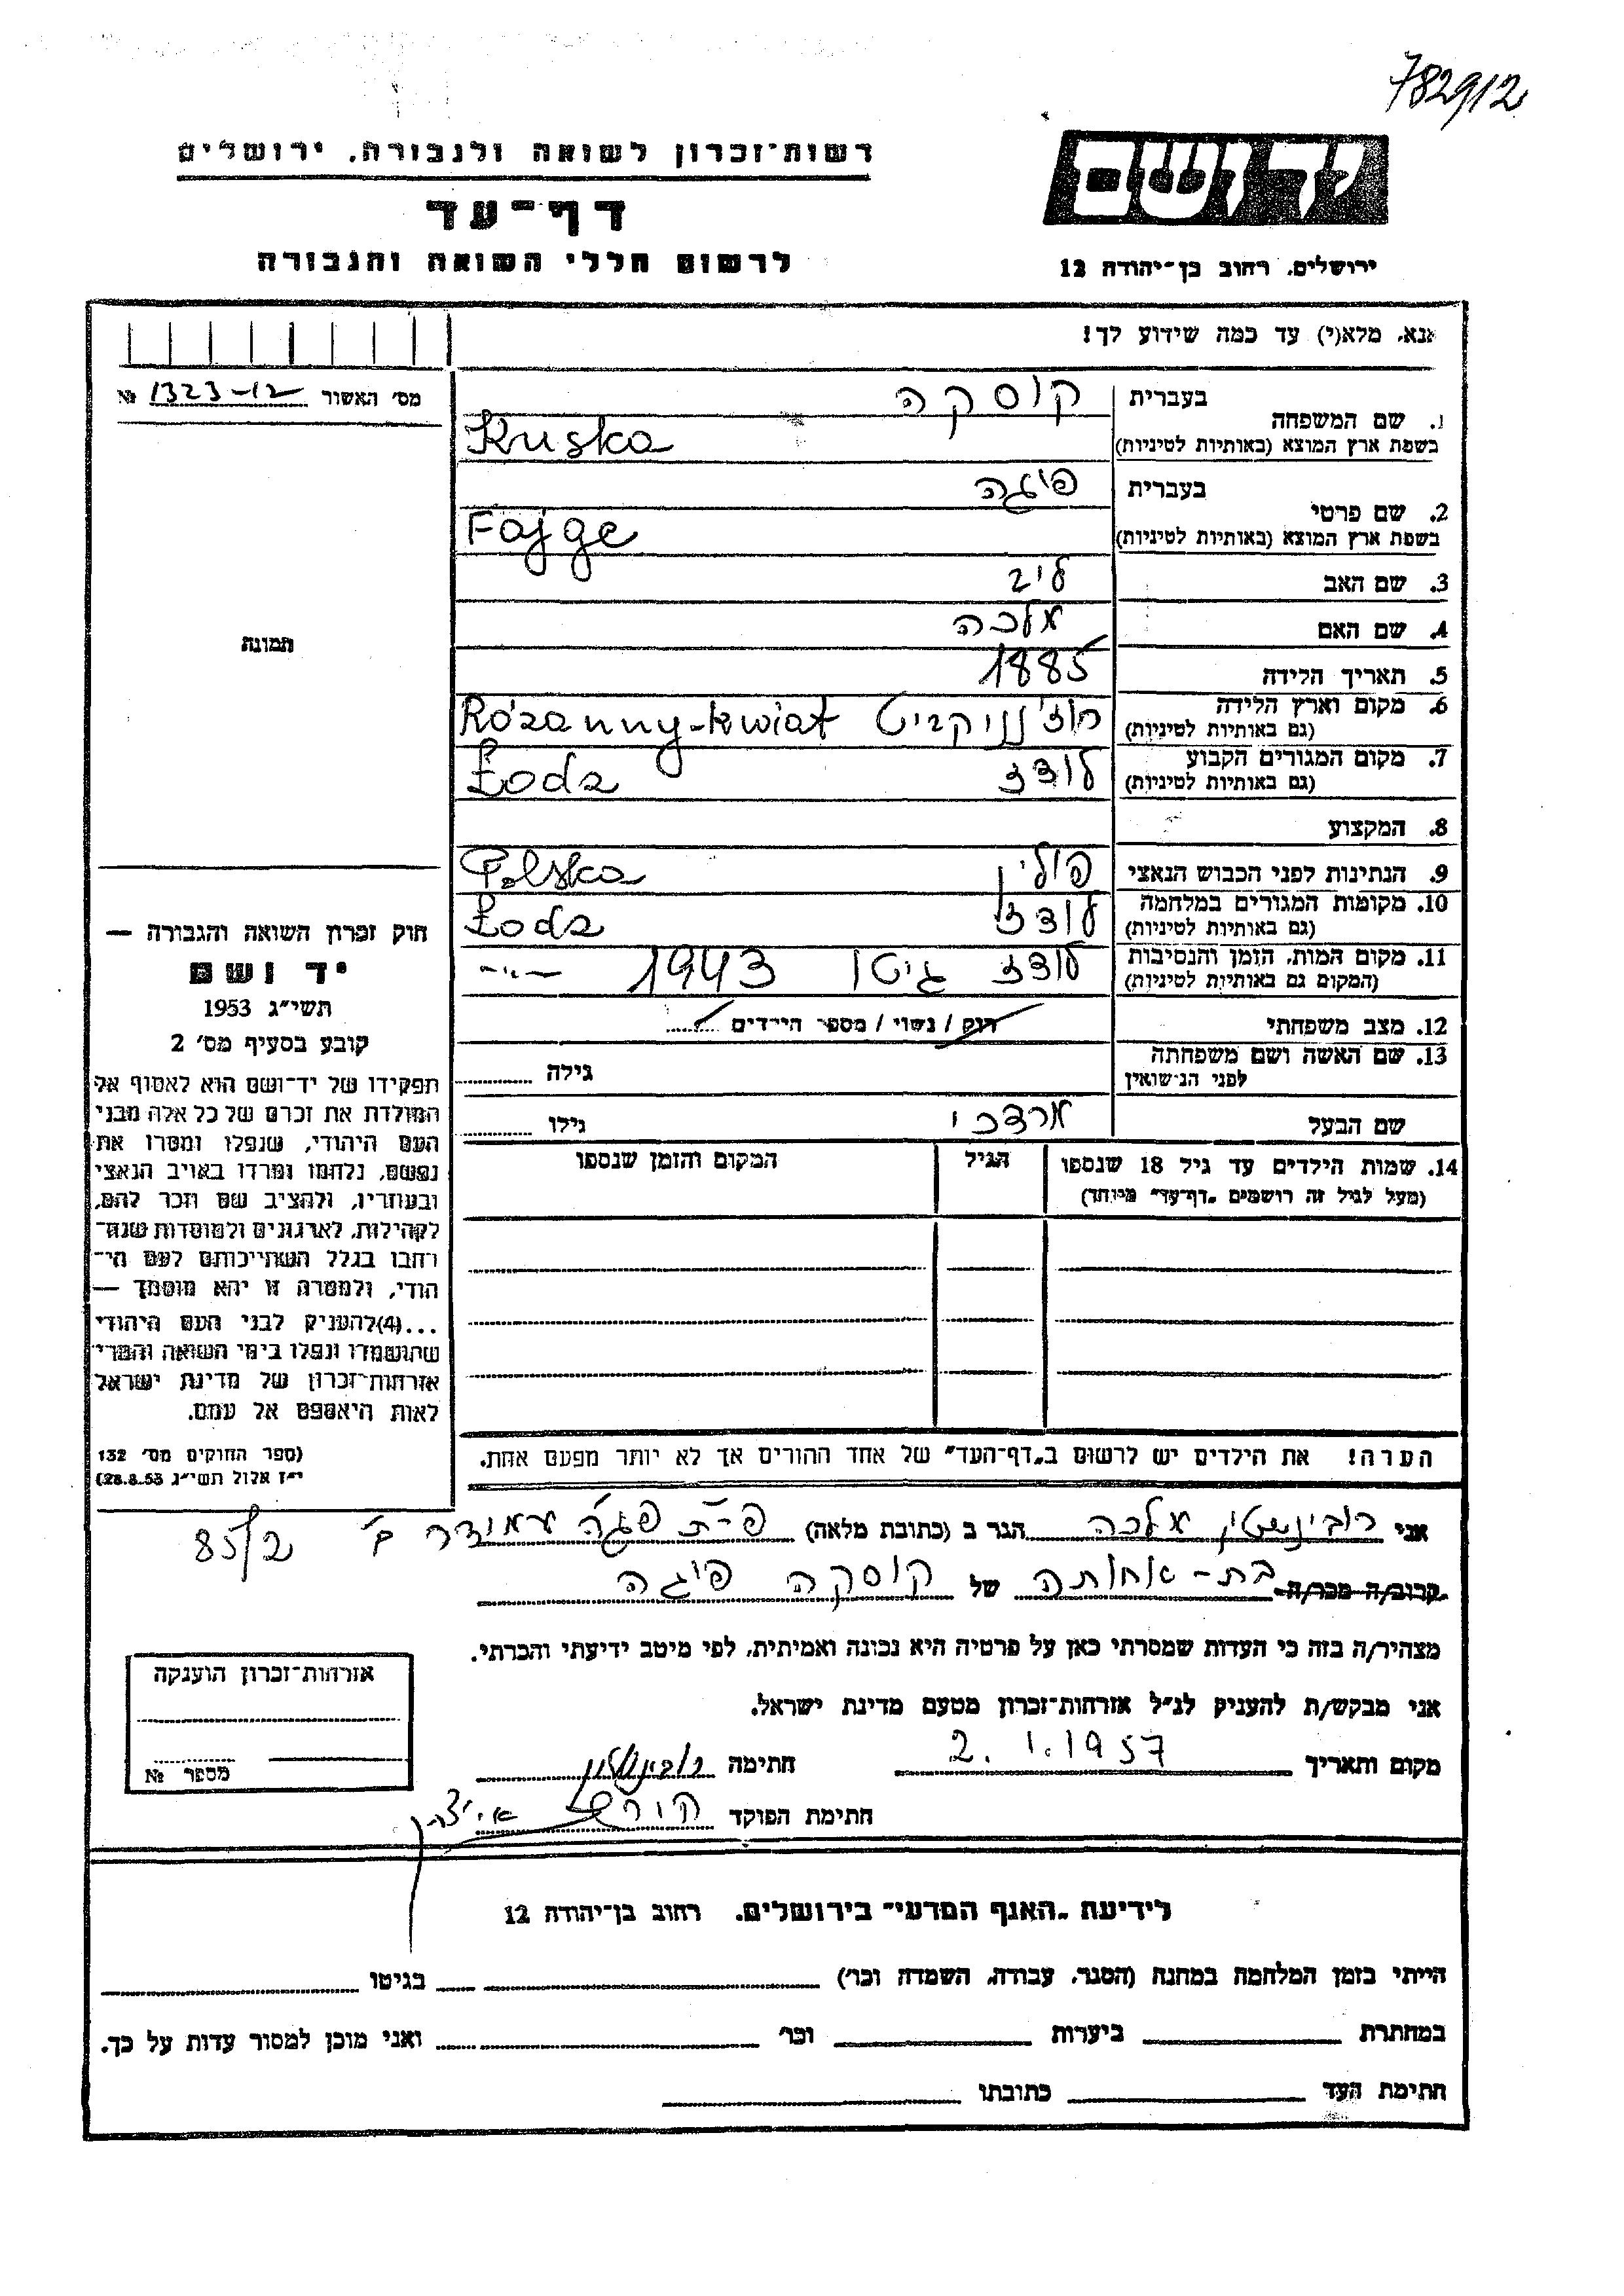 782912
רשות־זכרון לשואה ולגבורה, ירושלים
דף־עד
לרשום חללי השואה והגבורה
יד ושם
ירושלים, רחוב בן־יהודה 12
אנא, מלא(י) עד כמה שידוע לך!
מס׳ האשור 1323-12 №
1. שם המשפחה בעברית קוסקה
בשפת ארץ המוצא (באותיות לטיניות) Kuska
2. שם פרטי בעברית פיגה
בשפת ארץ המוצא (באותיות לטיניות) Fajge
3. שם האב ליב
4. שם האם אלכה
5. תאריך הלידה 1885
6. מקום וארץ הלידה (גם באותיות לטיניות) רוז'ניקביט Rózanny-kwiat
7. מקום המגורים הקבוע (גם באותיות לטיניות) לודז Łodz
8. המקצוע
9. הנתינות לפני הכבוש הנאצי פולין Polska
10. מקומות המגורים במלחמה (גם באותיות לטיניות) לודז Łodz
11. מקום המות, הזמן והנסיבות (המקום גם באותיות לטיניות) לודז גיטו 1943 -"-
12. מצב משפחתי רוק / נשוי / מספר הילדים
13. שם האשה ושם משפחתה לפני הנישואין גילה
שם הבעל מרדכי גילו
14. שמות הילדים עד גיל 18 שנספו הגיל המקום והזמן שנספו
(מעל לגיל זה רושמים „דף־עד” מיוחד)
הערה! את הילדים יש לרשום ב„דף־העד” של אחד ההורים אך לא יותר מפעם אחת.
תמונה
חוק זכרון השואה והגבורה —
יד ושם
תשי״ג 1953
קובע בסעיף מס׳ 2
תפקידו של יד־ושם הוא לאסוף אל
המולדת את זכרם של כל אלה מבני
העם היהודי, שנפלו ומסרו את
נפשם, נלחמו ומרדו באויב הנאצי
ובעוזריו, ולהציב שם וזכר להם,
לקהילות, לארגונים ולמוסדות שנח־
רבו בגלל השתייכותם לעם הי־
הודי, ולמטרה זו יהא מוסמך —
...(4)להעניק לבני העם היהודי
שהושמדו ונפלו בימי השואה והמרי
אזרחות־זכרון של מדינת ישראל
לאות היאספם אל עמם.
(ספר החוקים מס׳ 132
י״ז אלול תשי״ג 28.8.53)
אני רובינשטין אלכה הגר ב (כתובת מלאה) פ-ת עמודר ב' 85/2
קרוב/ה מכר/ה בת-אחותה של קוסקה פיגה
מצהיר/ה בזה כי העדות שמסרתי כאן על פרטיה היא נכונה ואמיתית, לפי מיטב ידיעתי והכרתי.
אני מבקש/ת להעניק לנ״ל אזרחות־זכרון מטעם מדינת ישראל.
מקום ותאריך 2.1.1957 חתימה רובינשטיין
חתימת הפוקד
אזרחות־זכרון הוענקה
מספר №
לידיעת „האגף המדעי” בירושלים. רחוב בן־יהודה 12
הייתי בזמן המלחמה במחנה (הסגר, עבודה, השמדה וכו׳) בגיטו
במחתרת ביערות וכו׳ ואני מוכן למסור עדות על כך.
חתימת העד כתובתו